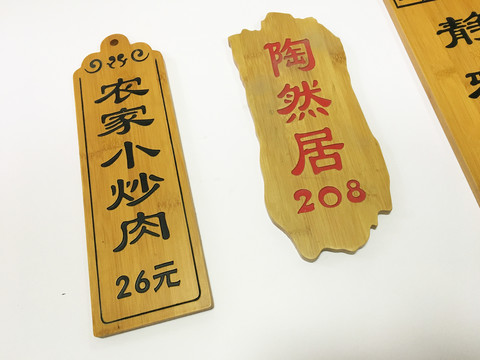 农家小炒肉
26元
陶然居
208
静